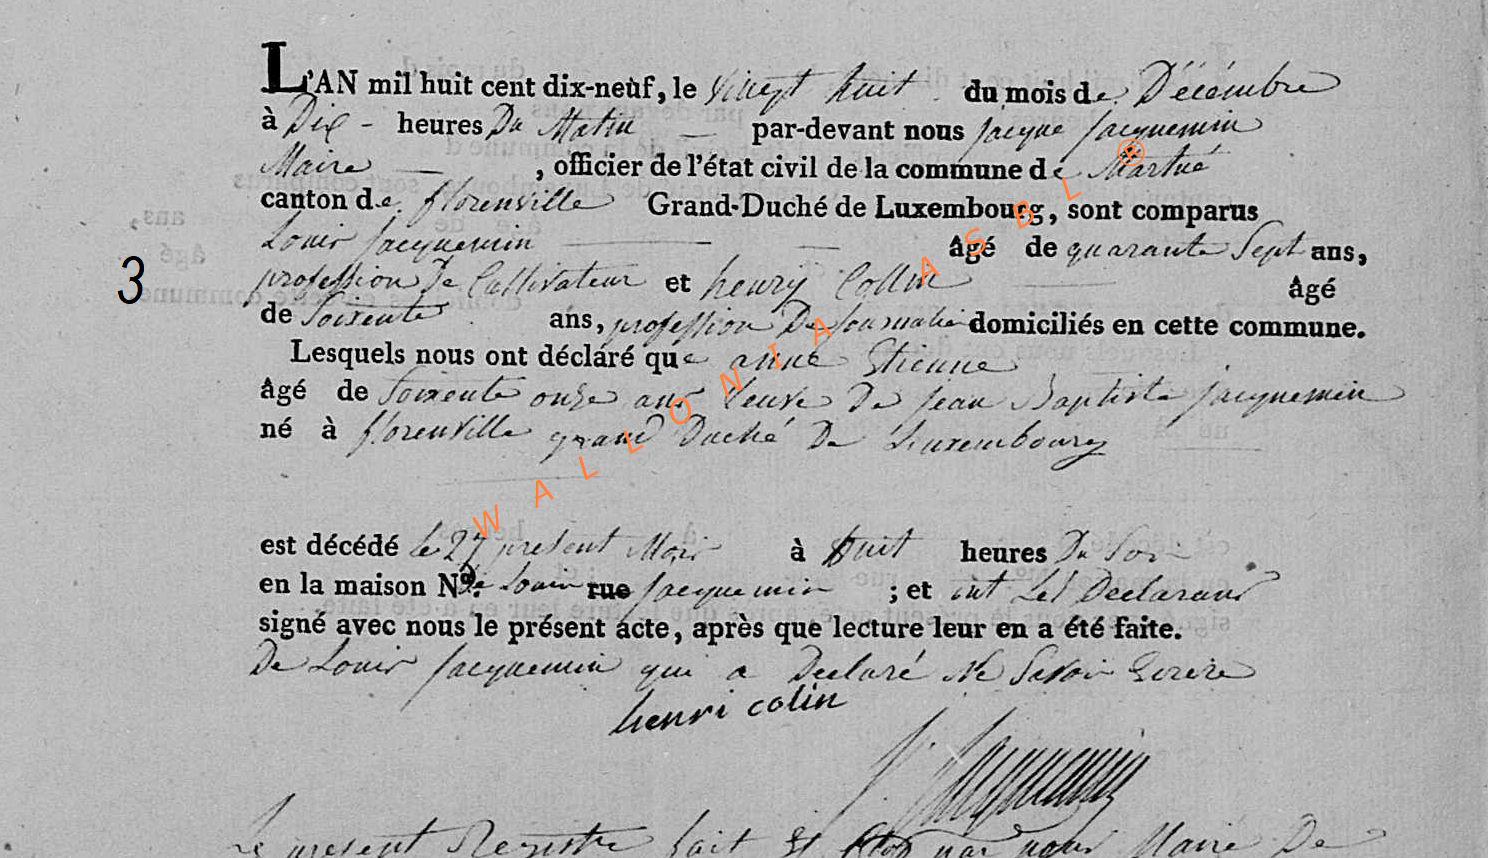 L'AN mil huit cent dix-neuf, le vingt huit du mois de Décémbre
à Dix - heures Du Matin — par-devant nous jacque jacquemin
Maire — , officier de l'état civil de la commune de Martué
canton de florenville Grand-Duché de Luxembourg, sont comparus
Louis jacquemin — — âgé de quarante Sept ans,
3
profession De Cultivateur et henry Collin — âgé
de Soixente ans, profession De Journalié domiciliés en cette commune.
Lesquels nous ont déclaré que anne Etienne
âgé de Soixente onze ans Veuve De jean Baptiste jacquemin
né à florenville grand Duché De Luxembourg
est décédé le 27 present Mois à huit heures Du Soir
en la maison No. de Louis rue jacquemin ; et ont Les Declarans
signé avec nous le présent acte, après que lecture leur en a été faite.
De Louis jacquemin qui a Declaré Ne Savoir Ecrire
henri colin
J. Jacquemin
Le présent Registre fait Et Clos par nous Maire De
WALLONIA ASBL ®